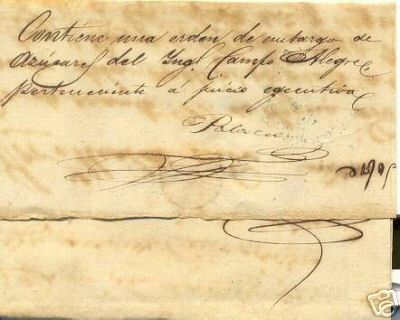 Contiene una orden de embargo de
Azúcares del Ingº Campo Alegre
perteneciente á juicio ejecutivo
Palacios